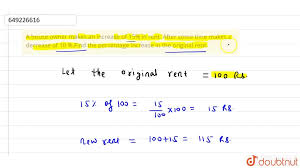 649226616
A house owner makes an increase of 15% in rent. After some time makes a
decrease of 10 %.Find the percentage increase in the original rent.
Let the original rent = 100 Rs.
15% of 100 = 15/100 ×100 = 15 Rs
new rent = 100+15 = 115 Rs.
doubtnut